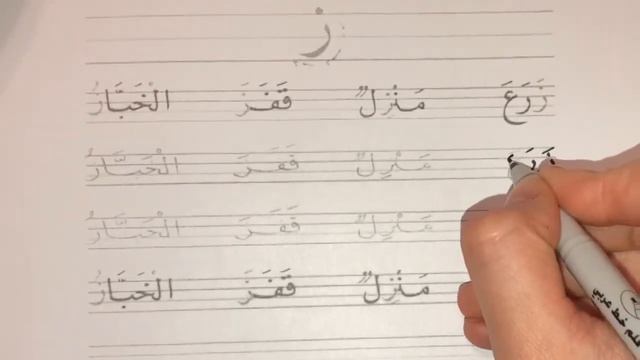 ز
زَرَعَ مَنْزِلٌ قَفَزَ الْخَبَّازُ
مَنْزِلٌ قَفَزَ الْخَبَّازُ
مَنْزِلٌ قَفَزَ الْخَبَّازُ
مَنْزِلٌ قَفَزَ الْخَبَّازُ
خط عربي